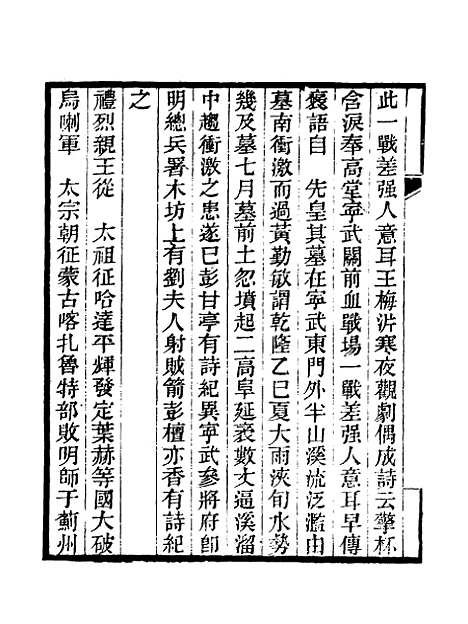 此一戰差强人意耳王梅泮寒夜觀劇偶成詩云擎杯
含淚奉高堂寧武關前血戰場一戰差强人意耳早傳
褒語自　先皇其墓在寧武東門外半山溪流泛濫由
墓南衝激而過黃勤敏謂乾隆乙巳夏大雨浹旬水勢
幾及墓七月墓前土忽墳起二高阜延袤數丈逼溪溜
中趨衝激之患遂巳彭甘亭有詩紀異寧武參將府卽
明總兵署木坊上有劉夫人射賊箭彭檀亦香有詩紀
之
禮烈親王從　太祖征哈達平輝發定葉赫等國大破
烏喇軍　太宗朝征蒙古喀扎魯特部敗明師于薊州